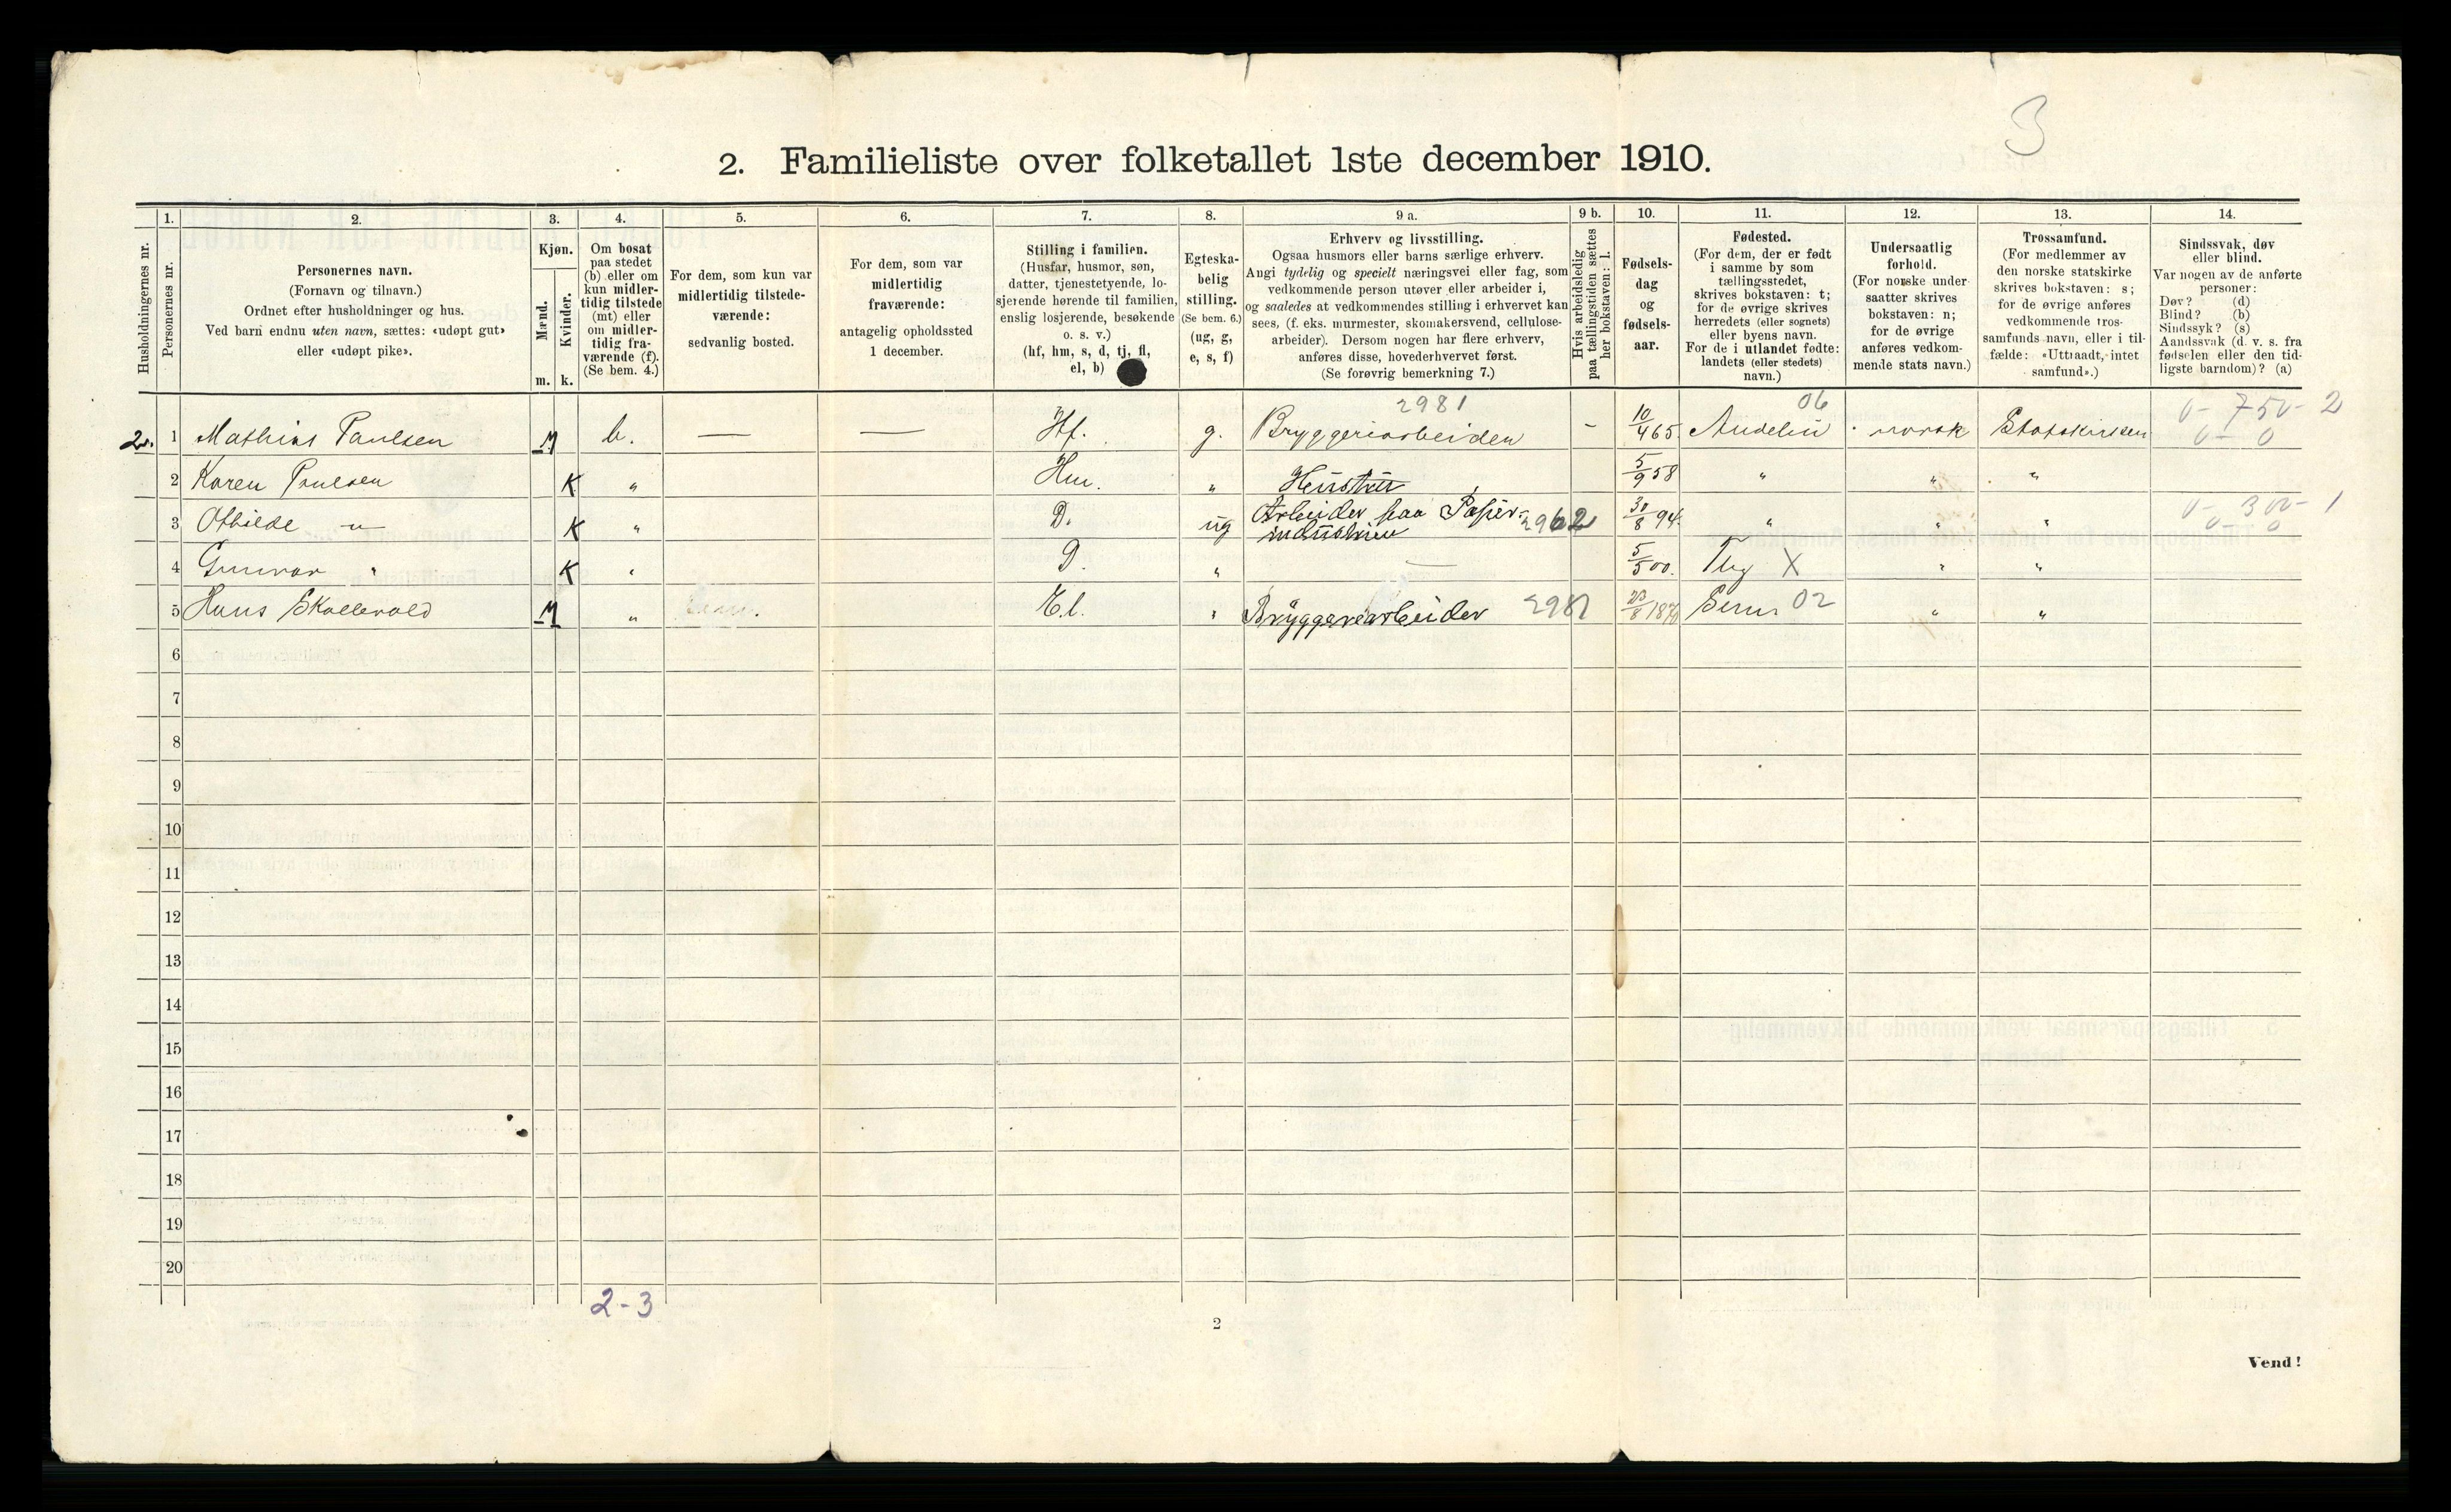 3
2. Familieliste over folketallet 1ste december 1910.
Husholdningernes nr.
1.
Personernes nr.
2.
Personernes navn.
(Fornavn og tilnavn.)
Ordnet efter husholdninger og hus.
Ved barn endnu uten navn, sættes: «udøpt gut»
eller «udøpt pike».
3.
Kjøn.
Mænd.
m.
Kvinder.
k.
4.
Om bosat
paa stedet
(b) eller om
kun midler-
tidig tilstede
(mt) eller
om midler-
tidig fra-
værende (f).
(Se bem. 4.)
5.
For dem, som kun var
midlertidig tilstede-
værende:
sedvanlig bosted.
6.
For dem, som var
midlertidig
fraværende:
antagelig opholdssted
1 december.
7.
Stilling i familien.
(Husfar, husmor, søn,
datter, tjenestetyende, lo-
sjerende hørende til familien,
enslig losjerende, besøkende
o. s. v.)
(hf, hm, s, d, tj, fl,
el, b)
8.
Egteska-
belig
stilling.
(Se bem. 6.)
(ug, g,
e, s, f)
9 a.
Erhverv og livsstilling.
Ogsaa husmors eller barns særlige erhverv.
Angi tydelig og specielt næringsvei eller fag, som
vedkommende person utøver eller arbeider i,
og saaledes at vedkommendes stilling i erhvervet kan
sees, (f. eks. murmester, skomakersvend, cellulose-
arbeider). Dersom nogen har flere erhverv,
anføres disse, hovederhvervet først.
(Se forøvrig bemerkning 7.)
9 b.
Hvis arbeidsledig
paa tællingstiden sættes
her bokstaven: l.
10.
Fødsels-
dag
og
fødsels-
aar.
11.
Fødested.
(For dem, der er født
i samme by som
tællingsstedet,
skrives bokstaven: t;
for de øvrige skrives
herredets (eller sognets)
eller byens navn.
For de i utlandet fødte:
landets (eller stedets)
navn.)
12.
Undersaatlig
forhold.
(For norske under-
saatter skrives
bokstaven: n;
for de øvrige
anføres vedkom-
mende stats navn.)
13.
Trossamfund.
(For medlemmer av
den norske statskirke
skrives bokstaven: s;
for de øvrige anføres
vedkommende tros-
samfunds navn, eller i til-
fælde: «Uttraadt, intet
samfund».)
14.
Sindssvak, døv
eller blind.
Var nogen av de anførte
personer:
Døv? (d)
Blind? (b)
Sindssyk? (s)
Aandssvak (d. v. s. fra
fødselen eller den tid-
ligste barndom)? (a)
2981 06 0- 750- 2
2. 1 Mathias Paulsen M b. — — Hf. g. Bryggeriarbeider - 10/4 65. Andebu norsk Statskirken 0- 0
2 Karen Paulsen K " Hm. " Hustru 5/9 58 " " "
3 Othilde " K " D. ug Arbeider paa Papir- 2962 30/8 94. " " " 0- 300- 1
industrien 0- 0
4 Gunvor " K " D. " — 5/5 00. Tbg X " "
5 Hans Skallevold M " El. " Bryggeriarbeider 2981 /8 18 Sem 02 " "
6
7
8
9
10
11
12
13
14
15
16
17
18
19
20
2-3
2
Vend!